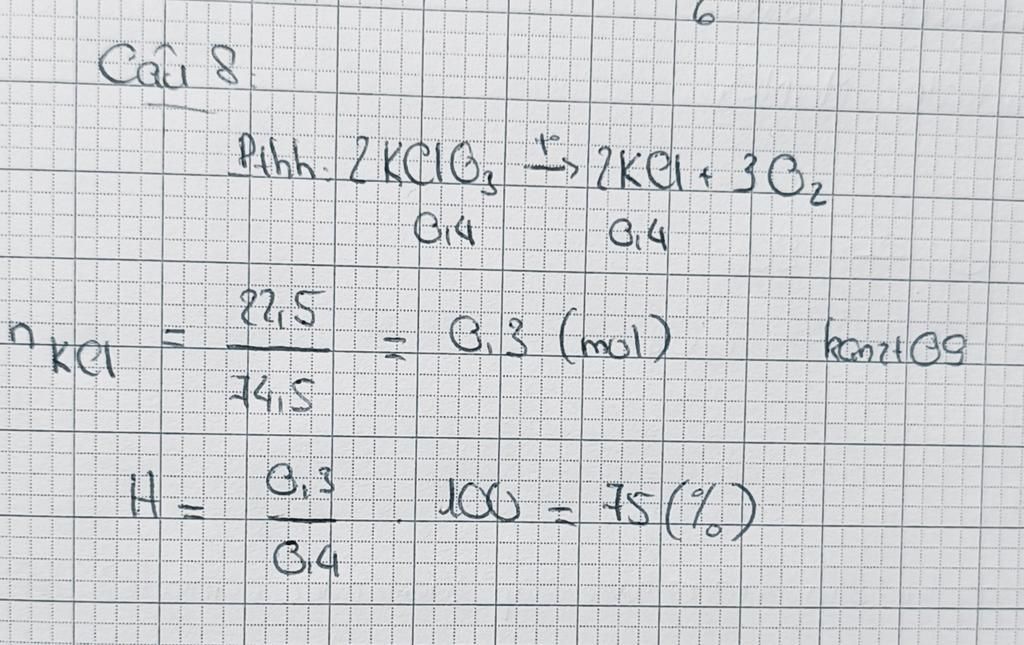 6
Câu 8
Pthh: 2KClO₃ —t°→ 2KCl + 3O₂
0,4 0,4
n KCl = 22,5 / 74,5 = 0,3 (mol) kanzt09
H = 0,3 / 0,4 . 100 = 75 (%)